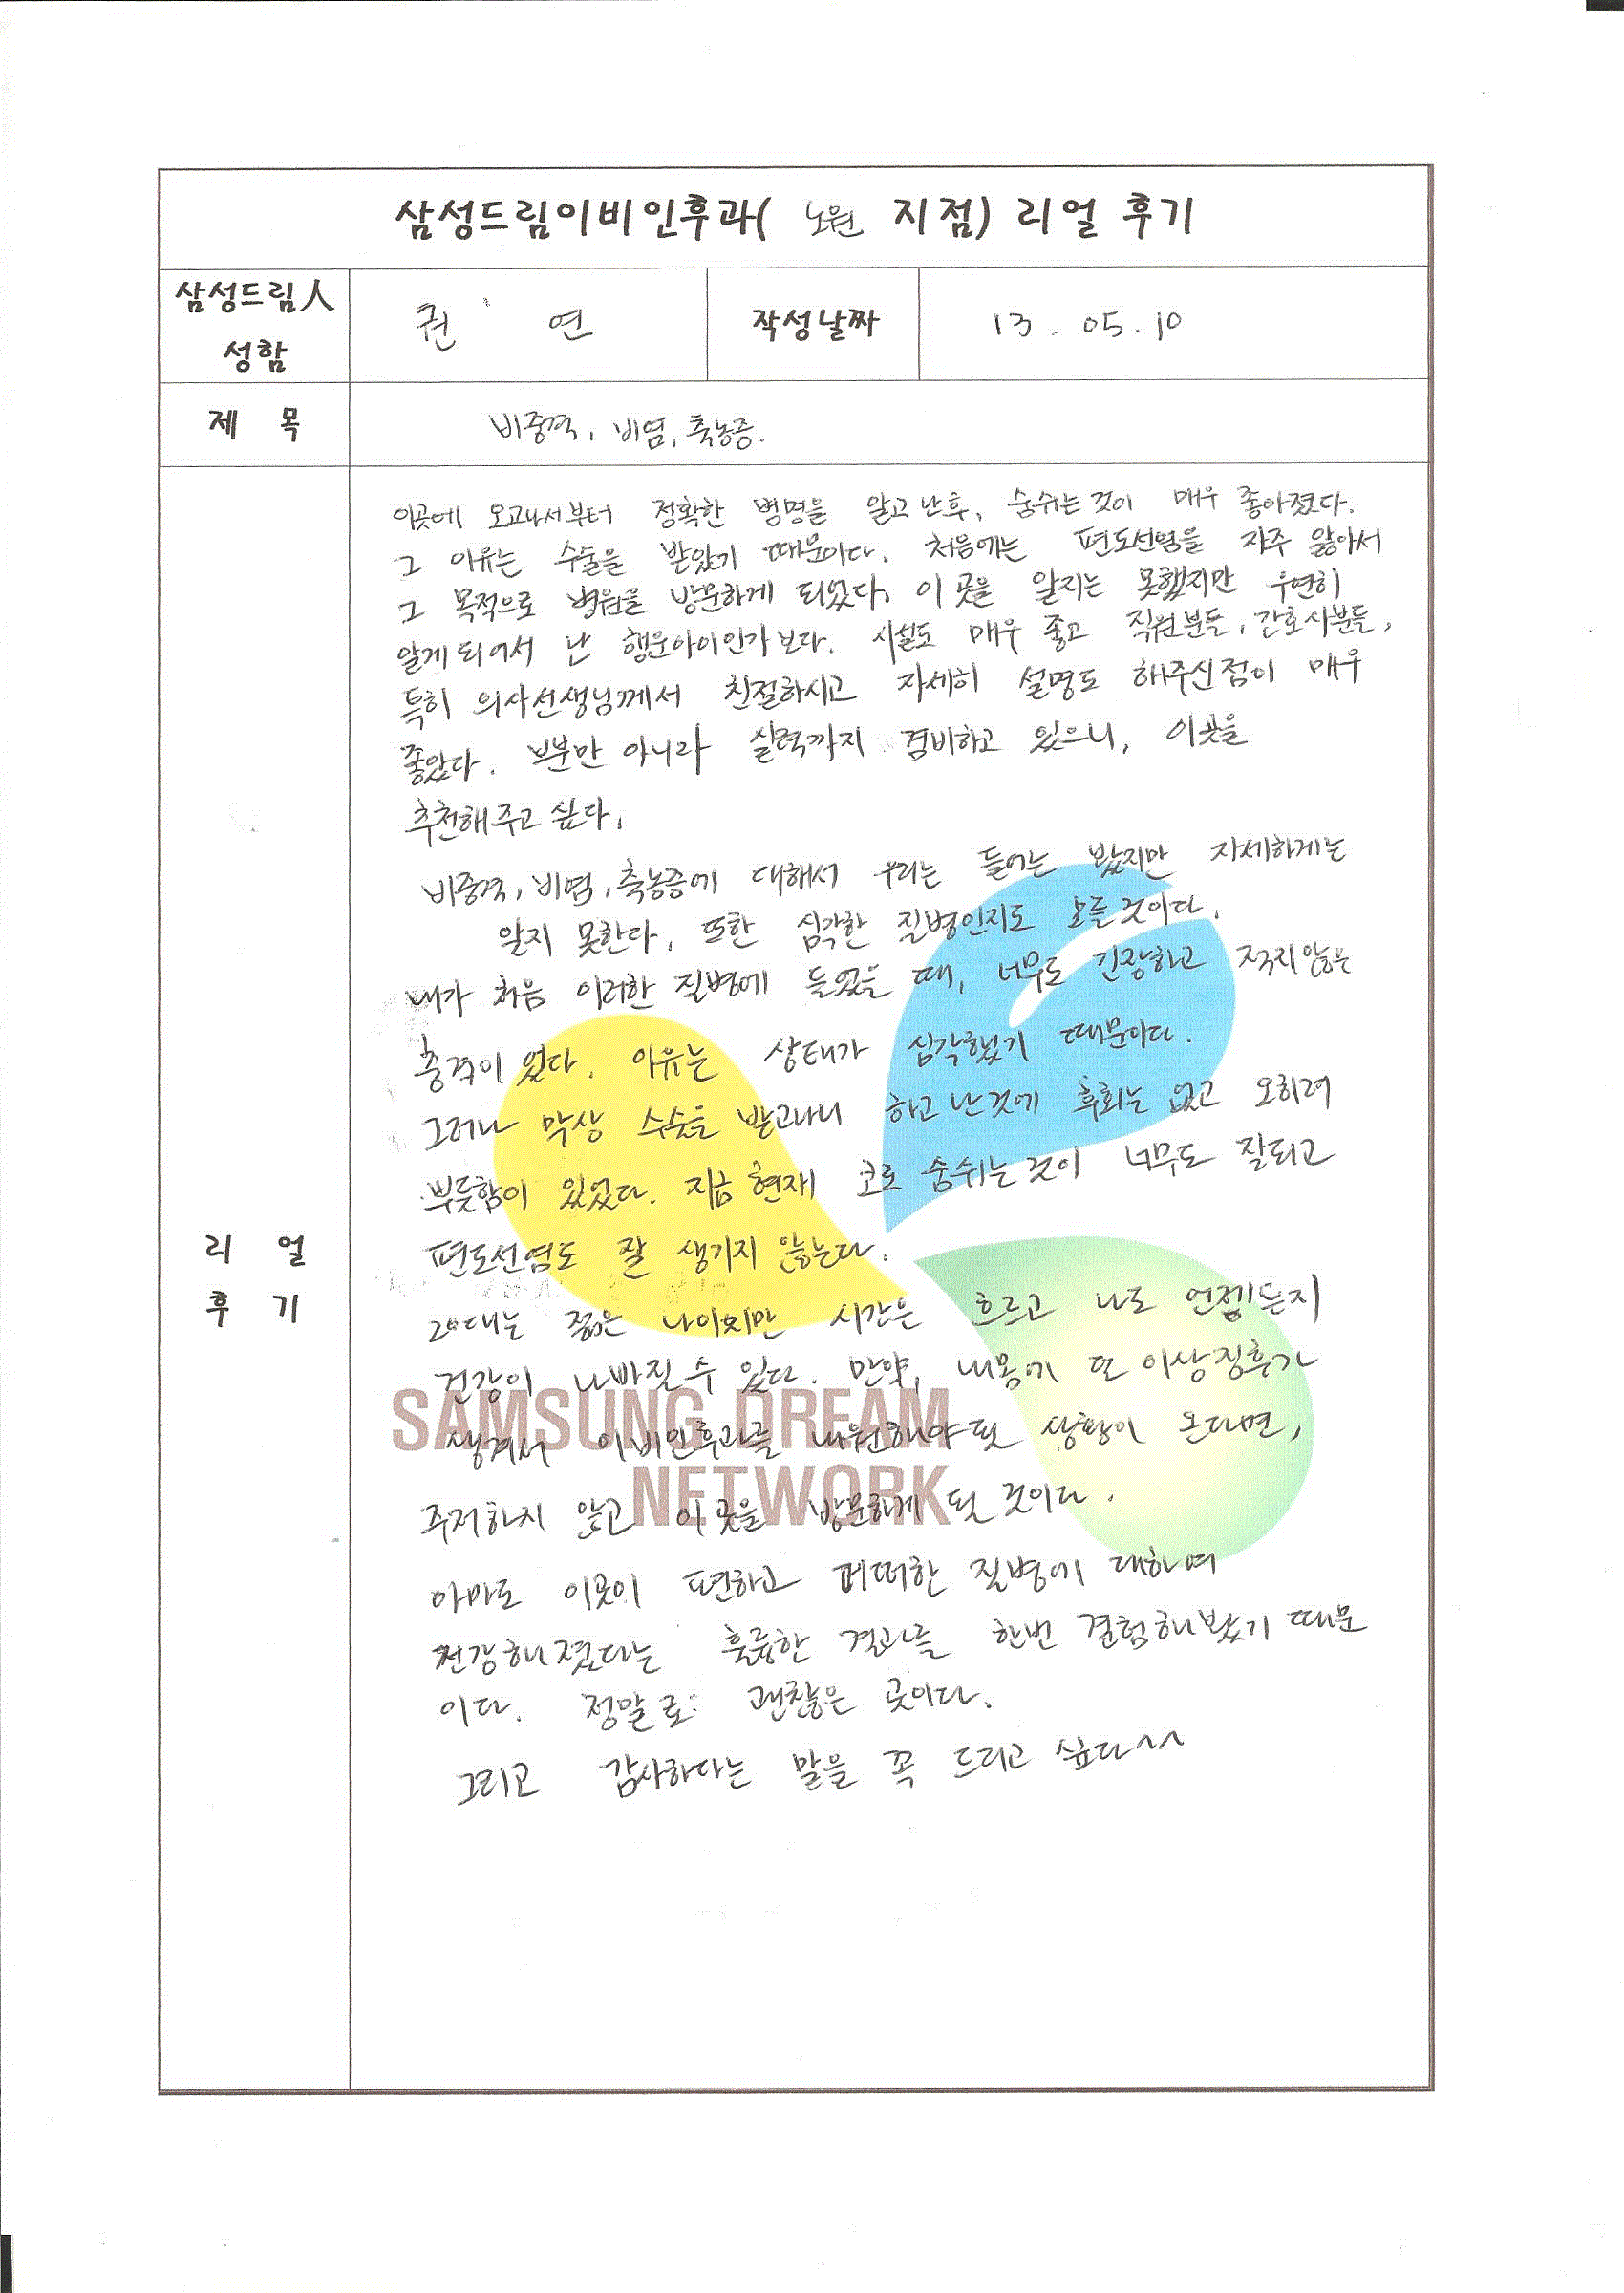 삼성드림이비인후과( 노원 지점) 리얼 후기
삼성드림人
성함
권 연
작성날짜
13. 05. 10
제 목
비중격, 비염, 축농증.
이곳에 오고나서부터 정확한 병명을 알고 난후, 숨쉬는 것이 매우 좋아졌다.
그 이유는 수술을 받았기 때문이다. 처음에는 편도선염을 자주 앓아서
그 목적으로 병원을 방문하게 되었다. 이 곳을 알지는 못했지만 우연히
알게 되어서 난 행운아이인가 보다. 시설도 매우 좋고 직원분들, 간호사분들,
특히 의사선생님께서 친절하시고 자세히 설명도 해주신점이 매우
좋았다. 뿐만 아니라 실력까지 겸비하고 있으니, 이곳을
추천해주고 싶다.
비중격, 비염, 축농증에 대해서 우리는 들어는 봤지만 자세하게는
알지 못한다. 또한 심각한 질병인지도 모를 것이다.
내가 처음 이러한 질병에 들었을 때, 너무도 긴장하고 적지않은
충격이 있었다. 이유는 상태가 심각했기 때문이다.
그러나 막상 수술을 받고나니 하고 난것에 후회는 없고 오히려
뿌듯함이 있었다. 지금 현재 코로 숨쉬는 것이 너무도 잘되고
편도선염도 잘 생기지 않는다.
20대는 젊은 나이지만 시간은 흐르고 나도 언젠든지
건강이 나빠질 수 있다. 만약, 내몸에 또 이상징후가
생겨서 이비인후과를 내원해야 될 상황이 온다면,
주저하지 않고 이 곳을 방문하게 될 것이다.
아마도 이곳이 편하고 질병에 대하여
건강해졌다는 훌륭한 결과를 한번 경험해봤기 때문
이다. 정말로 괜찮은 곳이다.
그리고 감사하다는 말을 꼭 드리고 싶다^^
리 얼
후 기
SAMSUNG DREAM
NETWORK